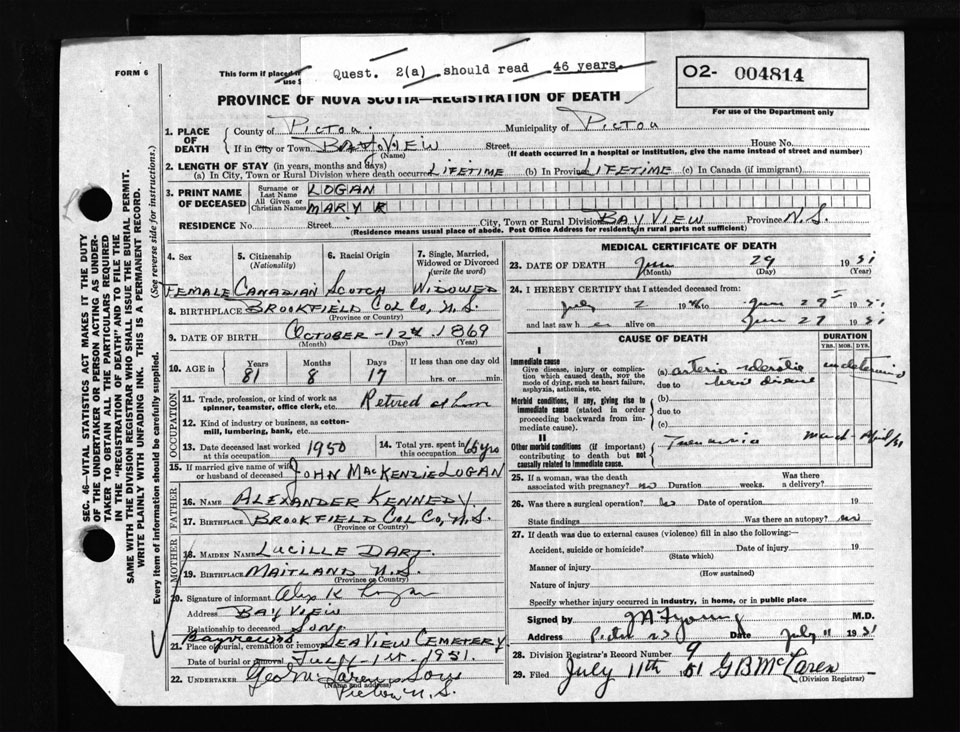 FORM 6
This form if placed
use
Quest. 2(a) should read 46 years.
O2- 004814
For use of the Department only
PROVINCE OF NOVA SCOTIA—REGISTRATION OF DEATH
1. PLACE OF DEATH
County of Pictou Municipality of Pictou
If in City or Town Bay View Street House No.
(Name) (If death occurred in a hospital or institution, give the name instead of street and number)
2. LENGTH OF STAY (in years, months and days)
(a) In City, Town or Rural Division where death occurred Lifetime (b) In Province Lifetime (c) In Canada (if immigrant)
3. PRINT NAME OF DECEASED
Surname or Last Name LOGAN
All Given or Christian Names MARY R
RESIDENCE No. Street City, Town or Rural Division Bay View Province N.S.
(Residence means usual place of abode. Post Office Address for residents in rural parts not sufficient)
4. Sex Female
5. Citizenship (Nationality) Canadian
6. Racial Origin Scotch
7. Single, Married, Widowed or Divorced (write the word) Widowed
8. BIRTHPLACE Brookfield Col Co, N.S.
(Province or Country)
9. DATE OF BIRTH October - 12th 1869
(Month) (Day) (Year)
10. AGE in Years 81 Months 8 Days 17 If less than one day old hrs. or min.
OCCUPATION
11. Trade, profession, or kind of work as spinner, teamster, office clerk, etc. Retired at home
12. Kind of industry or business, as cotton-mill, lumbering, bank, etc.
13. Date deceased last worked 1950
14. Total yrs. spent in 65 yrs
15. If married give name of wife or husband of deceased John MacKenzie Logan
FATHER
16. Name Alexander Kennedy
17. Birthplace Brookfield Col Co, N.S.
(Province or Country)
MOTHER
18. Maiden Name Lucille Dart.
19. Birthplace Maitland N.S.
(Province or Country)
20. Signature of informant Alex K Logan
Address Bay View
Relationship to deceased Son
21. Place of burial, cremation or removal Bayview Seaview Cemetery
Date of burial or removal July 1st. 1951.
22. UNDERTAKER Sons
(Name and address)
Pictou N.S.
MEDICAL CERTIFICATE OF DEATH
23. DATE OF DEATH June 29 1951
(Month) (Day) (Year)
24. I HEREBY CERTIFY that I attended deceased from:
July 2 1946 to June 29 1951
and last saw her alive on June 27 1951
CAUSE OF DEATH
DURATION
YRS. MOS. DYS.
I
Immediate cause
Give disease, injury or complication which caused death, not the mode of dying, such as heart failure, asphyxia, asthenia, etc.
(a) arterio sclerotic
due to heart disease
Morbid conditions, if any, giving rise to immediate cause (stated in order proceeding backwards from immediate cause).
(b)
due to
(c)
II
Other morbid conditions (if important) contributing to death but not causally related to immediate cause.
March - April/51
25. If a woman, was the death associated with pregnancy? no Duration weeks. Was there a delivery?
26. Was there a surgical operation? Date of operation 19
State findings Was there an autopsy? no
27. If death was due to external causes (violence) fill in also the following:—
Accident, suicide or homicide? Date of injury 19
(State which)
Manner of injury
(How sustained)
Nature of injury
Specify whether injury occurred in industry, in home, or in public place
Signed by M.D.
Address Pictou NS Date July 11 1951
28. Division Registrar's Record Number 9
29. Filed July 11th 1951 G B McLaren
(Division Registrar)
SEC. 46—VITAL STATISTICS ACT MAKES IT THE DUTY
OF THE UNDERTAKER OR PERSON ACTING AS UNDER-
TAKER TO OBTAIN ALL THE PARTICULARS REQUIRED
IN THE "REGISTRATION OF DEATH" AND TO FILE THE
SAME WITH THE DIVISION REGISTRAR WHO SHALL ISSUE THE BURIAL PERMIT.
WRITE PLAINLY WITH UNFADING INK. THIS IS A PERMANENT RECORD.
Every item of information should be carefully supplied. (See reverse side for instructions.)